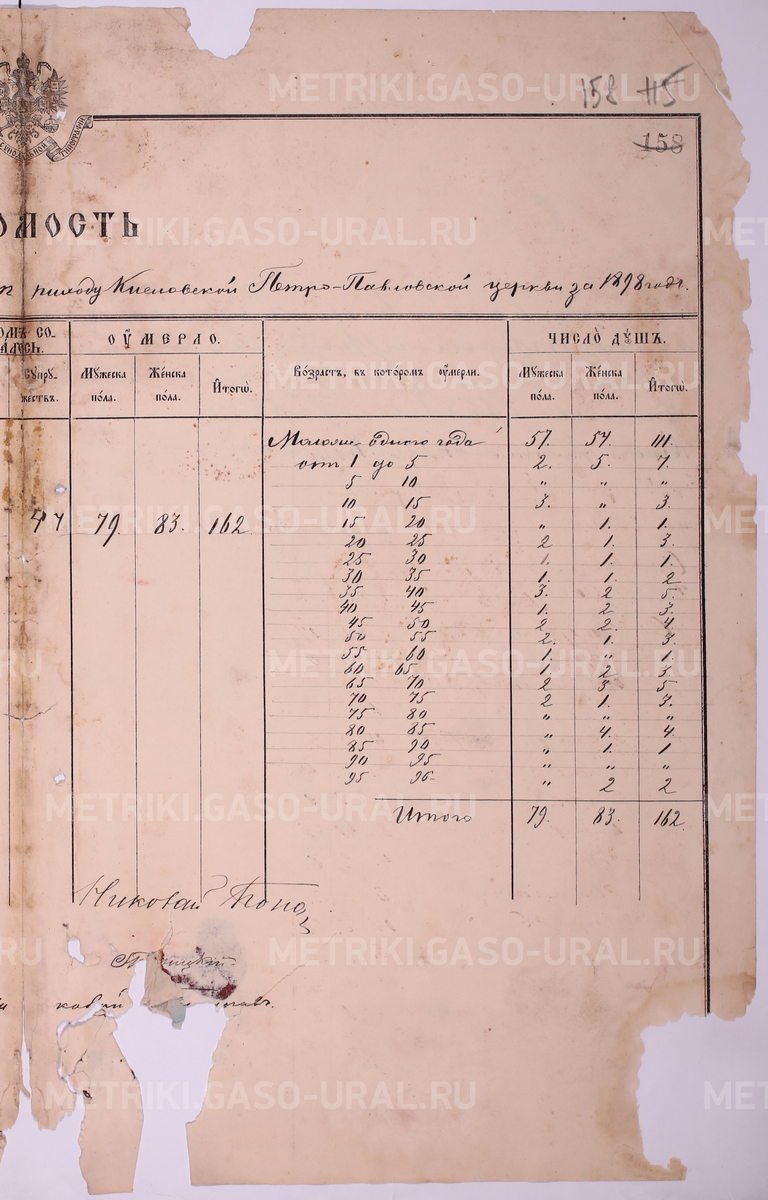 158 115
158
ОМОСТЬ
приходу Кисловской Петро-Павловской церкви за 1898 годъ.
ОМЪ СО-
АЛОСЬ.
ОУМЕРЛО.
ЧИСЛО ДУШЪ.
Супру-
жествъ.
Мужеска
пола.
Женска
пола.
Итогѡ.
Возрастъ, въ которомъ оумерли.
Мужеска
пола.
Женска
пола.
Итогѡ.
47 79. 83. 162
одного года 57. 54. 111.
отъ 1 до 5 2. 5. 7.
5 10 " " "
10 15 3. " 3.
15 20 " 1. 1.
20 25 2 1. 3.
25 30 1. 1.
30 35 1. 1. 2
35 40 3. 2 5.
40 45 1. 2 3.
45 50 2 2. 4.
50 55 2. 1. 3.
55 60 1. " 1.
60 65 1. 2 3.
65 70 2 3 5
70 75 2 1. 3.
75 80 " " "
80 85 " 4. 4.
85 90 " 1. 1
90 95 " " "
95 96 " 2 2
Итого 79. 83. 162.
Николай Попо
METRIKI.GASO-URAL.RU